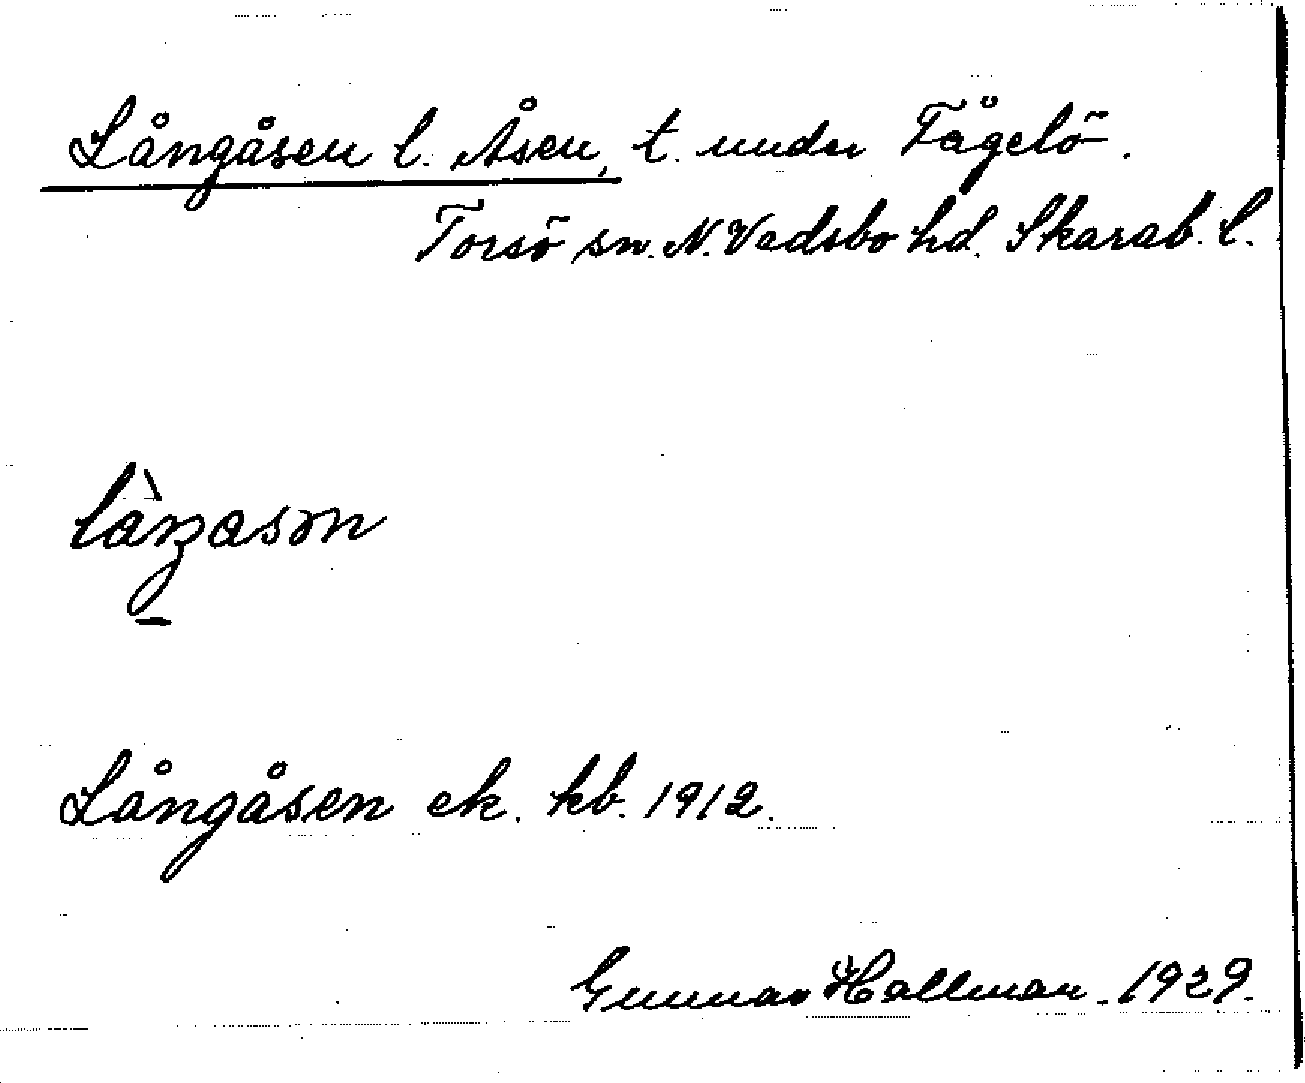 Långåsen l. Åsen, t. under Fågelö.
Torsö sn. N. Vadsbo hd. Skarab. l.
Långåsen ek. kb. 1912.
Gunnar Hallman. 1929.